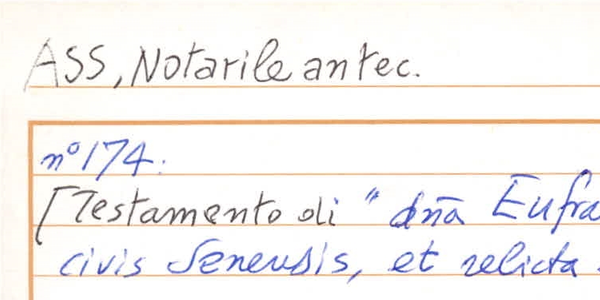 ASS, Notarile antec.
n° 174.
[Testamento di "dña Eufra
civis Senensis, et relicta